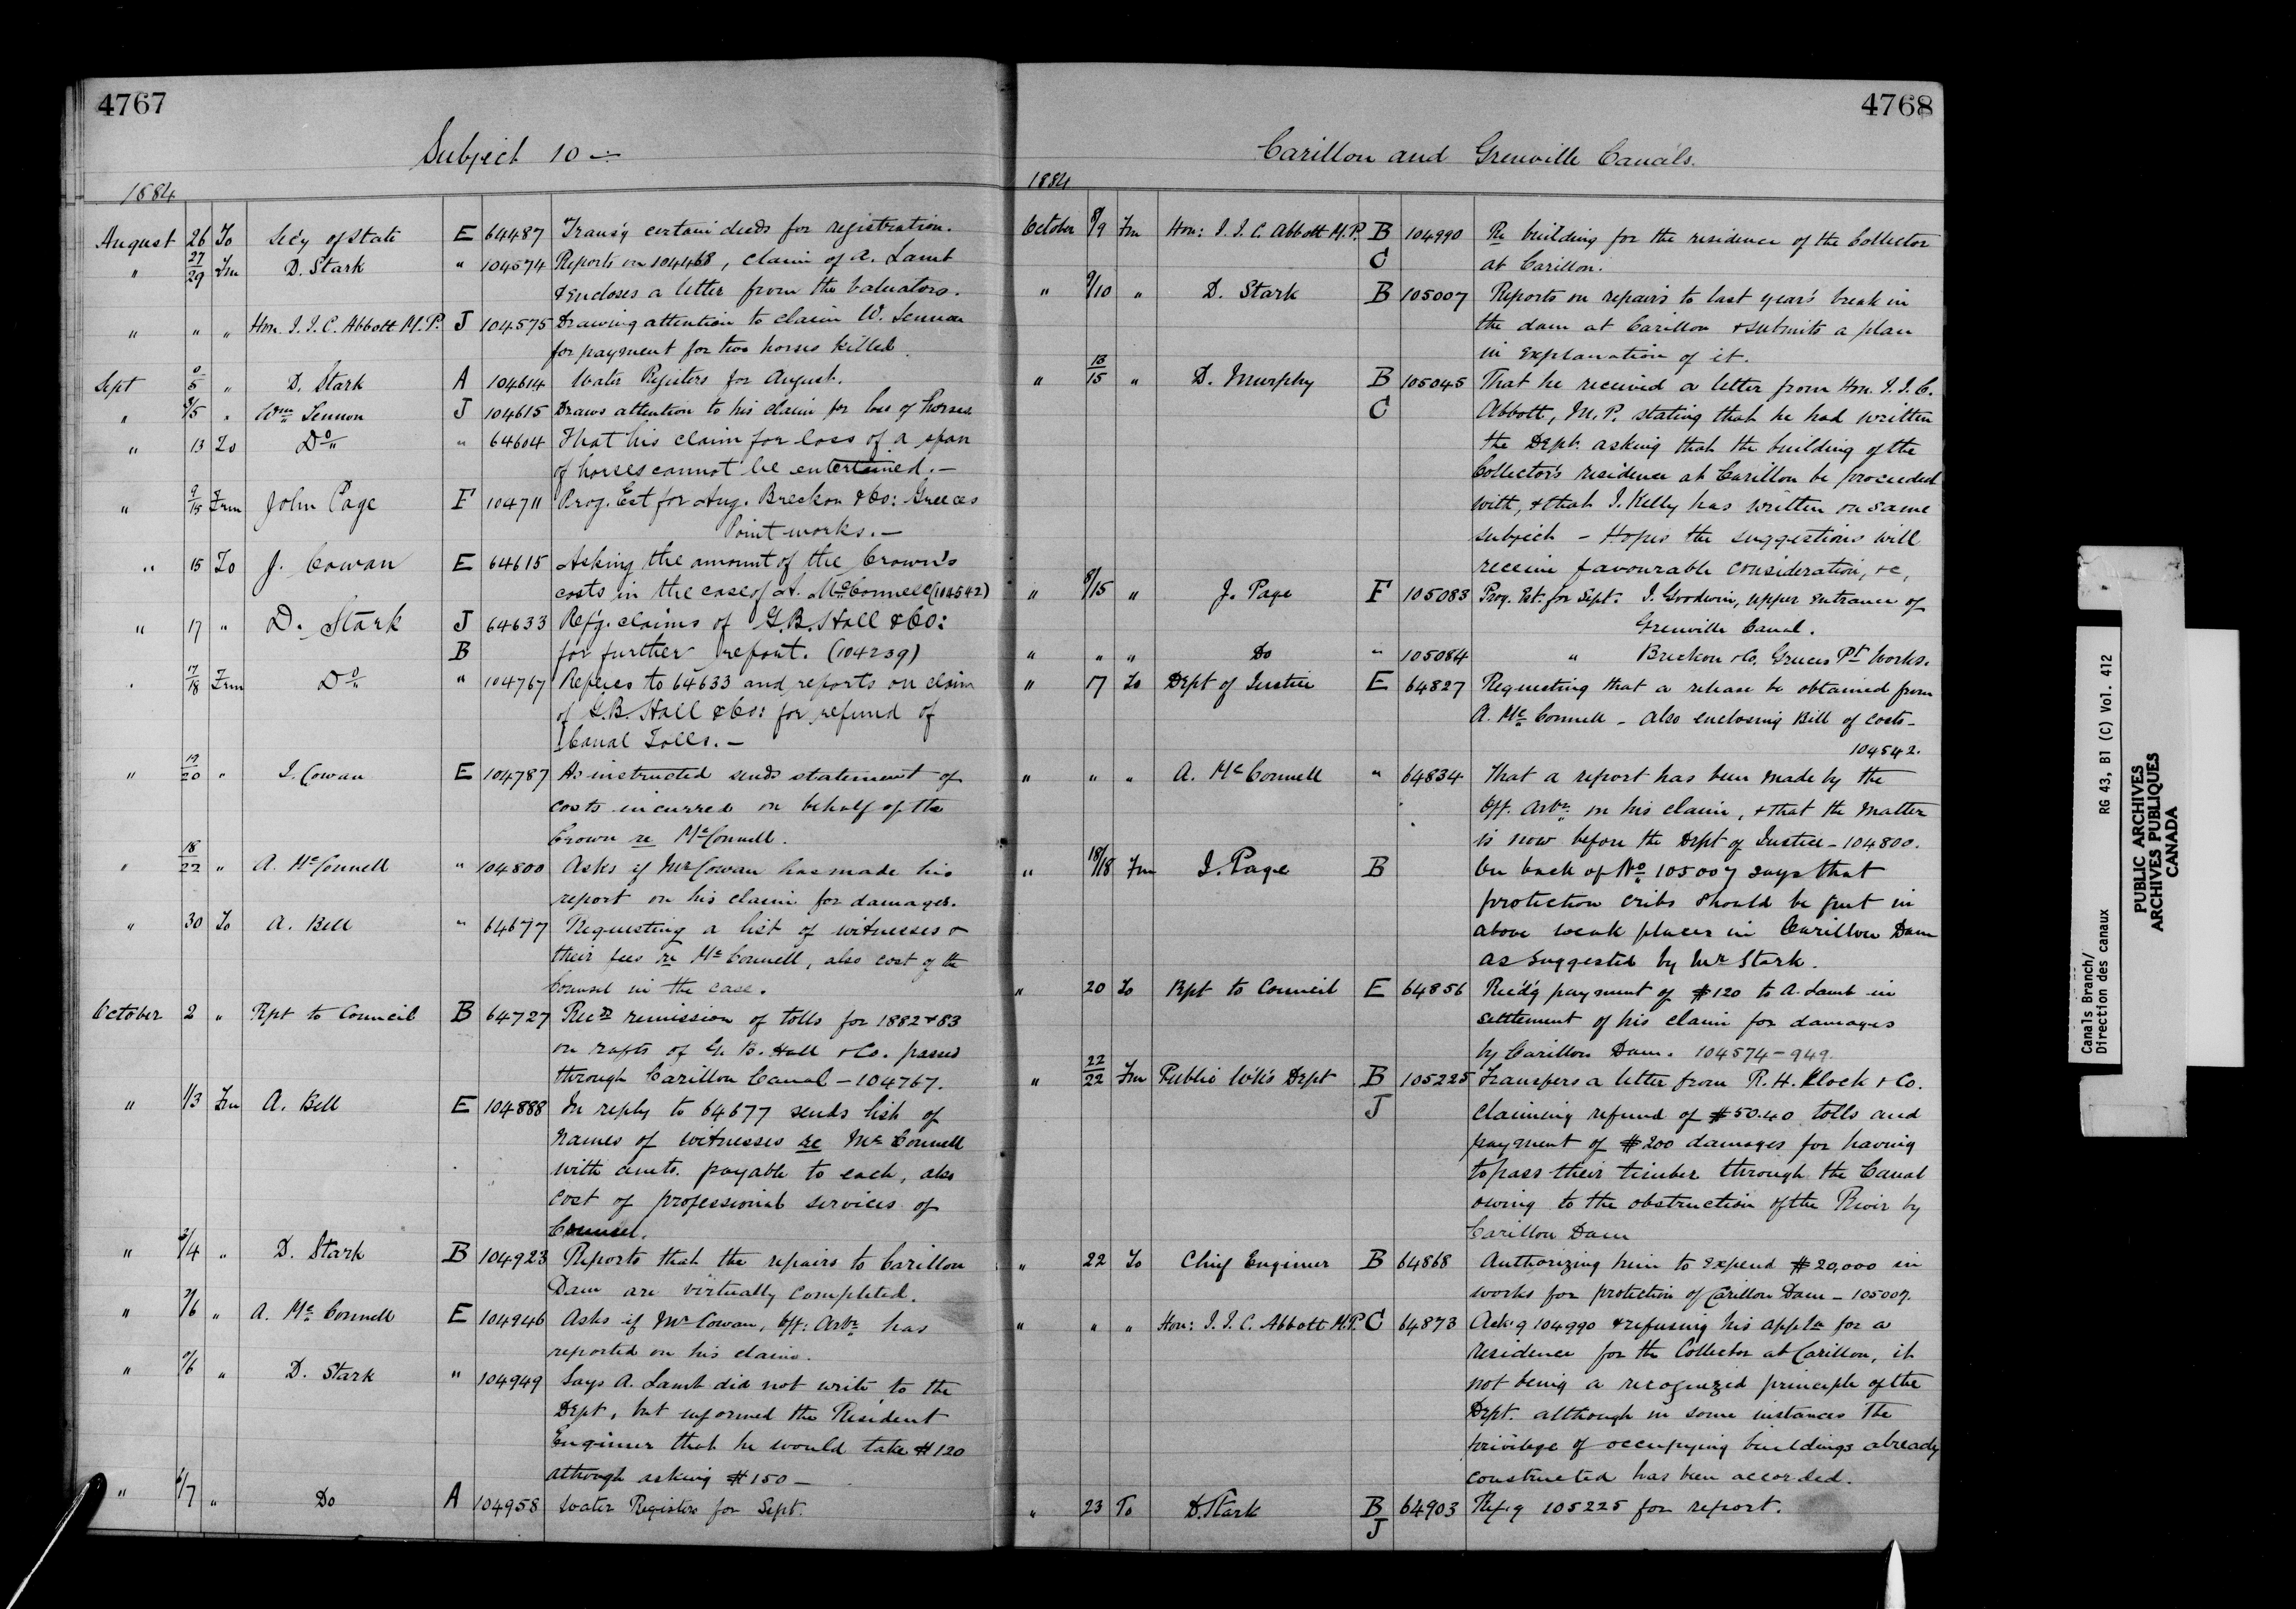 4767
Subject 10
1884
August 26 To Sec'y of State E 64487 Trans'g certain deeds for registration.
" 27/29 Frm D. Stark " 104574 Reports on 104468, claim of A. Lamb
& encloses a letter from the Valuators.
" " " Hon. J. J. C. Abbott M.P. J 104575 Drawing attention to claim W. Lennon
for payment for two horses killed.
Sept 5 " D. Stark A 104614 Water Registers for August.
" /5 " Wm Lennon J 104615 Draws attention to his claim for loss of horses
" 13 To Do " 64604 That his claim for loss of a span
of horses cannot be entertained. —
" 9/15 Frm John Page F 104711 Prog. Est for Aug. Breckon & Co: Greeces
Point works. —
" 15 To J. Cowan E 64615 Asking the amount of the Crown's
costs in the case of A. McConnell (104542)
" 17 " D. Stark J 64633 Ref'g. claims of G.B. Hall & Co:
B for further report. (104239)
" 17/18 Frm Do " 104767 Referes to 64633 and reports on claim
of G.B. Hall & Co: for refund of
Canal Tolls. —
" 19/20 " J. Cowan E 104787 As instructed sends statement of
costs incurred on behalf of the
Crown re McConnell.
" 18/22 " A. McConnell " 104800 Asks if Mr Cowan has made his
report on his claim for damages.
" 30 To A. Bell " 64677 Requesting a list of witnesses &
their fees re McConnell, also cost of the
Counsel in the case.
October 2 " Rpt to Council B 64727 Recd remission of tolls for 1882 & 83
on rafts of G. B. Hall & Co. passed
through Carillon Canal — 104767.
" 1/3 Frm A. Bell E 104888 In reply to 64677 sends list of
names of witnesses re McConnell
with amts. payable to each, also
cost of professional services of
Counsel.
" /4 " D. Stark B 104923 Reports that the repairs to Carillon
Dam are virtually completed.
" /6 " A. McConnell E 104946 Asks if Mr Cowan, Off: Arbr has
reported on his claim.
" /6 " D. Stark " 104949 Says A. Lamb did not write to the
Dept, but informed the Resident
Engineer that he would take $120
although asking $150 —
" 6/7 " Do A 104958 Water Registers for Sept.
4768
Carillon and Grenville Canals.
1884
October 8/9 Frm Hon: J. J. C. Abbott M.P. B 104990 Re building for the residence of the Collector
C at Carillon.
" 9/10 " D. Stark B 105007 Reports on repairs to last year's break in
the dam at Carillon & submits a plan
in explanation of it.
" 13/15 " D. Murphy B 105045 That he received a letter from Hon. J. J. C.
C Abbott, M.P. stating that he had written
the Dept. asking that the building of the
Collector's residence at Carillon be proceeded
with, & that J. Kelly has written on same
subject — Hopes the suggestions will
receive favourable consideration, &c,
" 8/15 " J. Page F 105083 Prog. Est. for Sept. J. Goodwin, upper entrance of
Grenville Canal.
" " " Do " 105084 " Breckon & Co. Greeces Pt Works.
" 17 To Dept of Justice E 64827 Requesting that a release be obtained from
A. McConnell — also enclosing Bill of Costs —
104542.
" " " A. McConnell " 64834 That a report has been made by the
Off. Arbr on his claim, & that the matter
is now before the Dept of Justice — 104800.
" 18/18 Frm J. Page B On back of No 105007 says that
protection cribs should be put in
above weak places in Carillon Dam
as suggested by Mr Stark.
" 20 To Rpt to Council E 64856 Rec'd'g payment of $120 to A. Lamb in
settlement of his claim for damages
by Carillon Dam. 104574 — 949.
" 22/22 Frm Public W'k's Dept B 105225 Transfers a letter from R. H. Klock & Co.
J claiming refund of $50.40 tolls and
payment of $200 damages for having
to pass their timber through the Canal
owing to the obstruction of the River by
Carillon Dam
" 22 To Chief Engineer B 64868 Authorizing him to expend $20,000 in
works for protection of Carillon Dam — 105007.
" " " Hon: J. J. C. Abbott M.P. C 64873 Ack'g 104990 & refusing his appln for a
residence for the Collector at Carillon, it
not being a recognized principle of the
Dept. although in some instances the
privilege of occupying buildings already
constructed has been accorded.
" 23 To D. Stark B 64903 Ref'g 105225 for report.
J
Canals Branch/
Direction des canaux RG 43, B1 (C) Vol. 412
PUBLIC ARCHIVES
ARCHIVES PUBLIQUES
CANADA